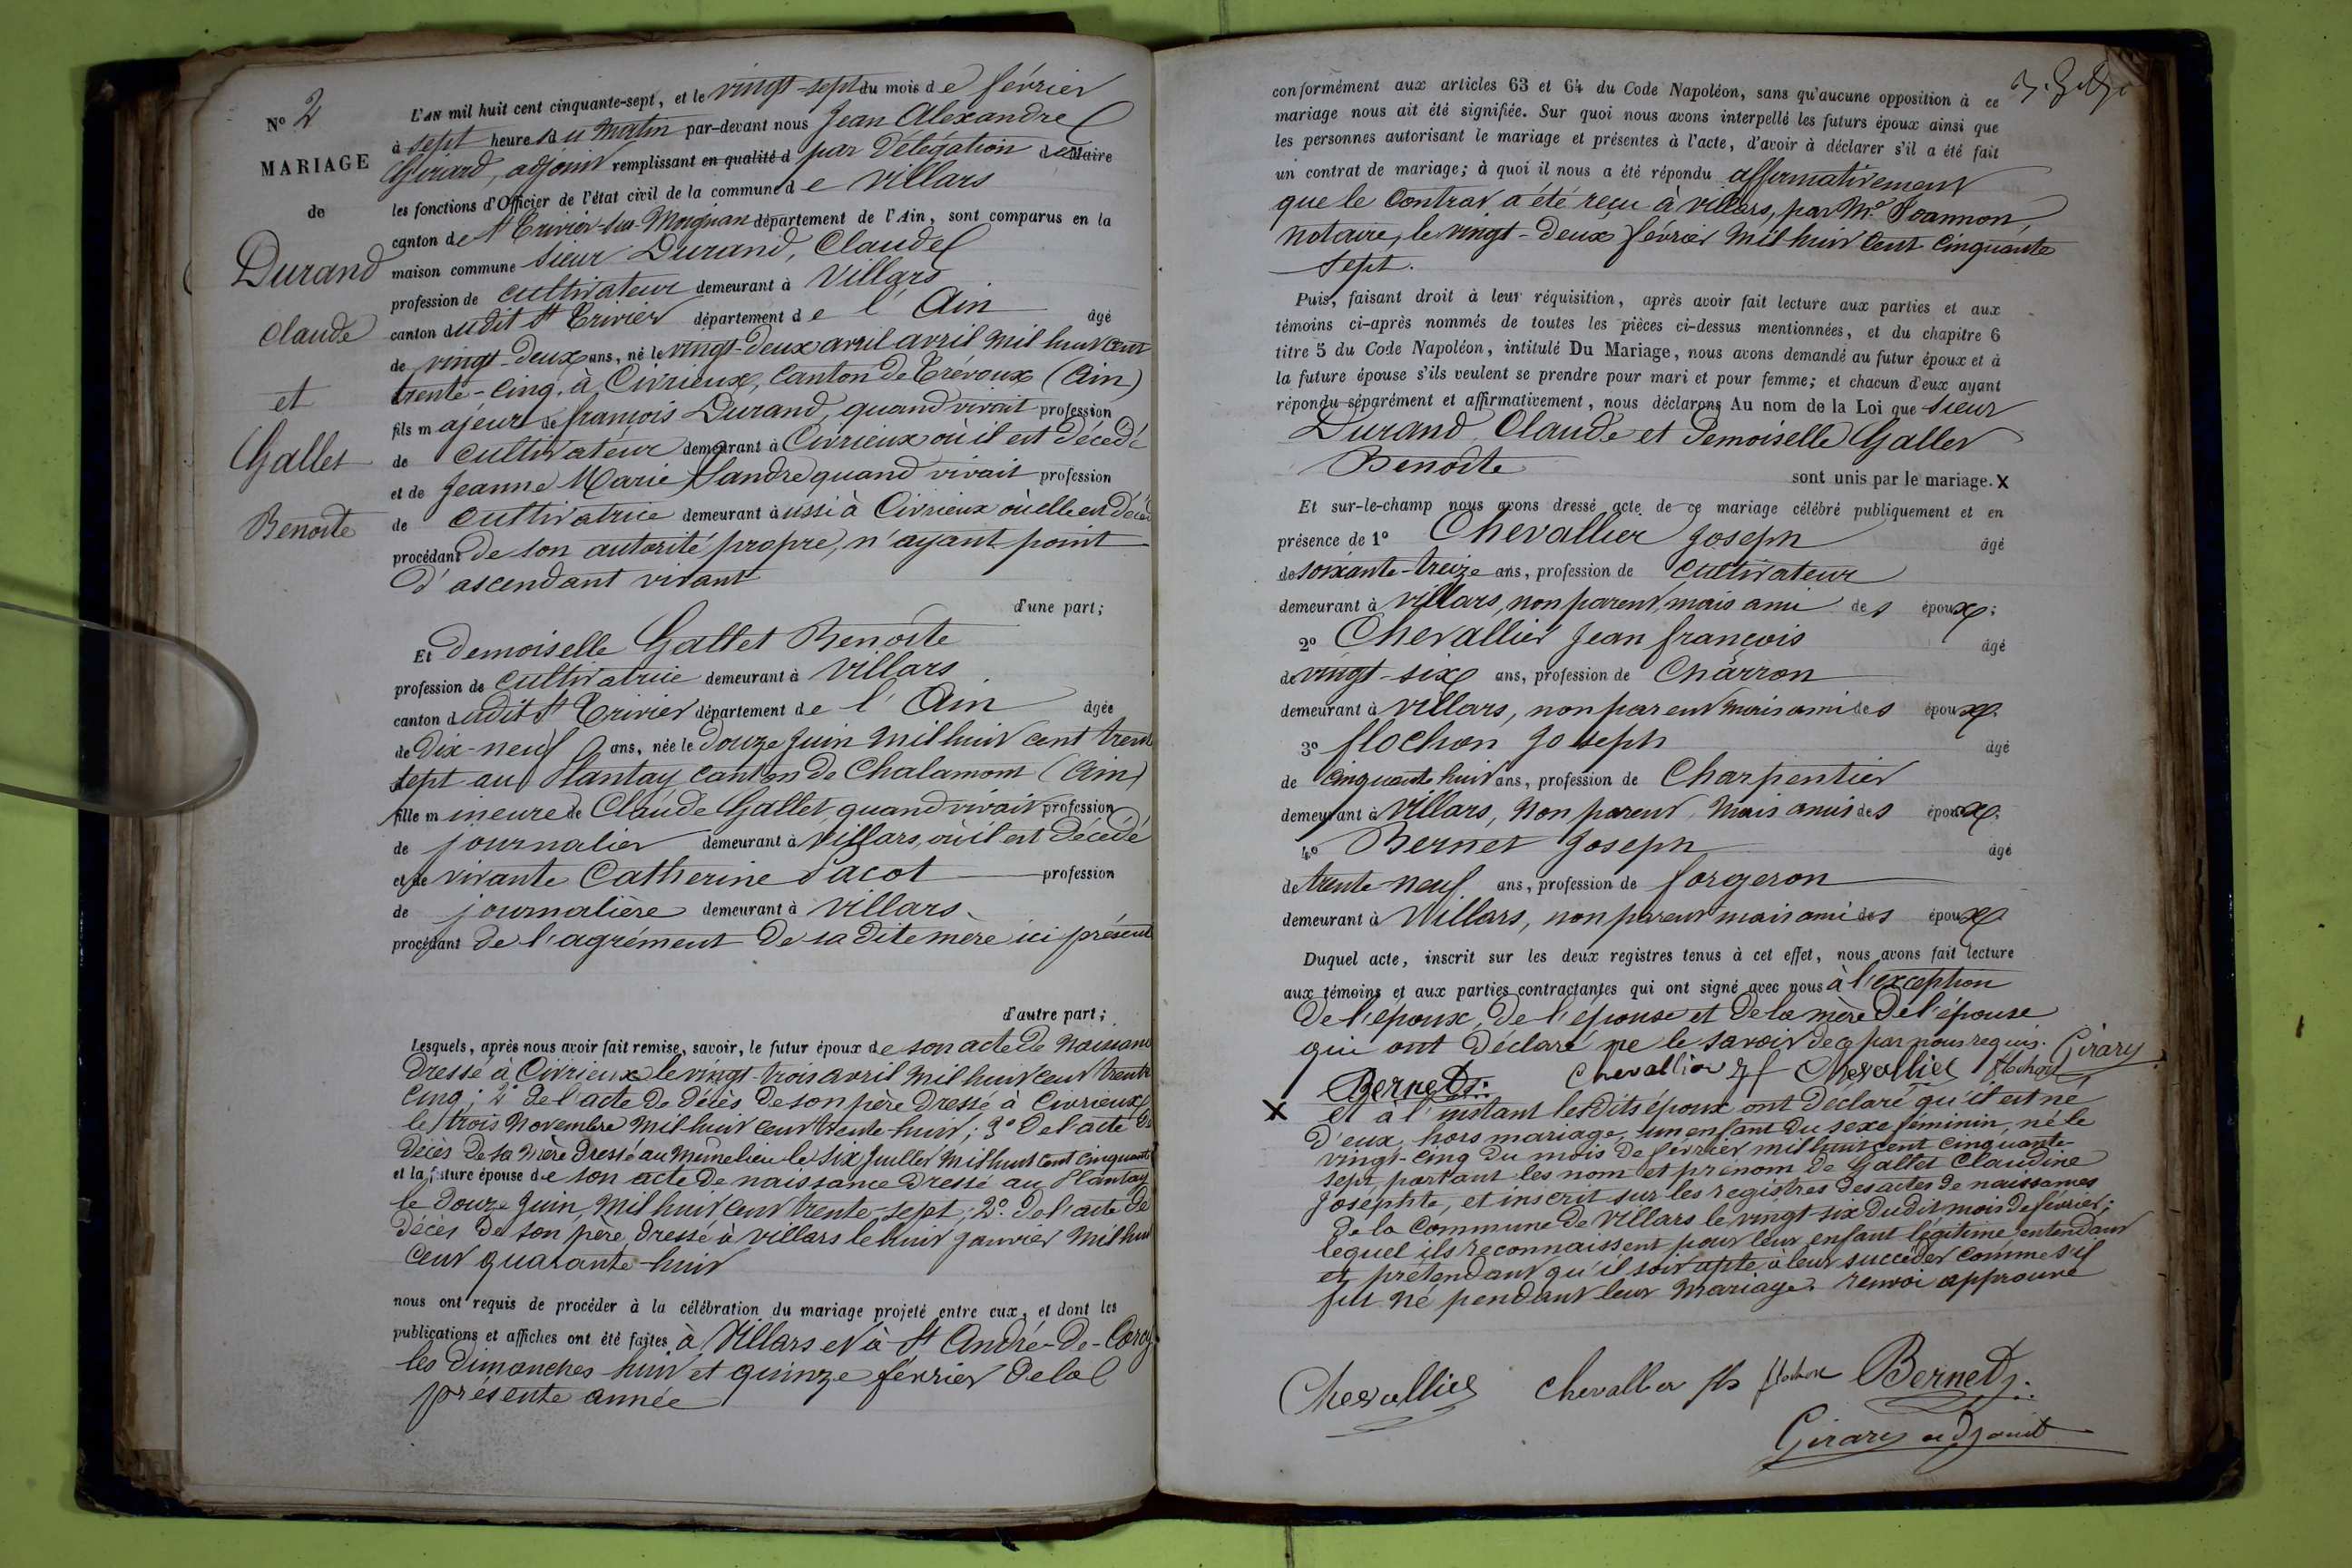 N° 2
MARIAGE
de
Durand
Claude
et
Gallet
Benoite
L'AN mil huit cent cinquante-sept, et le vingt-sept du mois de février
à sept heures du matin par-devant nous Jean Alexandre
Girard, adjoint remplissant en qualité d par Délégation du Maire
les fonctions d'Officier de l'état civil de la commune de Villars
canton de St Trivier-sur-Moignan département de l'Ain, sont comparus en la
maison commune Sieur Durand, Claude
profession de cultivateur demeurant à Villars
canton dudit St Trivier département de l'Ain âgé
de vingt-deux ans, né le vingt-deux avril avril mil huit cent
trente-cinq, à Civrieux, canton de Trévoux (Ain)
fils majeur de françois Durand, quand vivait profession
de cultivateur demeurant à Civrieux où il est décédé
et de Jeanne Marie Plandre quand vivait profession
de cultivatrice demeurant aussi à Civrieux où elle est décéd
procédant de son autorité propre, n'ayant point
d'ascendant vivant
d'une part;
Et demoiselle Gallet Benoite
profession de cultivatrice demeurant à Villars
canton dudit St Trivier département de l'Ain âgée
de Dix-neuf ans, née le Douze Juin mil huit cent trent
sept au Plantay canton de Chalamont (Ain)
fille mineure de Claude Gallet, quand vivait profession
de journalier demeurant à Villars, où il est décédé
et de vivante Catherine Pacot profession
de journalière demeurant à Villars
procédant de l'agrément de sa dite mère ici présent
d'autre part;
Lesquels, après nous avoir fait remise, savoir, le futur époux de son acte de naissance
dressé à Civrieux le vingt-trois avril mil huit cent trente
cinq; 2° de l'acte de décès de son père dressé à Civrieux
le trois Novembre mil huit cent trente-huit; 3° de l'acte de
décès de sa mère dressé au même lieu le six Juillet mil huit cent cinquante
et la future épouse de son acte de naissance dressé au Plantay
le douze Juin, mil huit cent trente-sept; 2° de l'acte de
décès de son père, dressé à Villars le huit janvier mil huit
cent quarante-huit
nous ont requis de procéder à la célébration du mariage projeté entre eux, et dont les
publications et affiches ont été faites à Villars et à St André-de-Corcy
les dimanches huit et quinze février de la
présente année
conformément aux articles 63 et 64 du Code Napoléon, sans qu'aucune opposition à ce
mariage nous ait été signifiée. Sur quoi nous avons interpellé les futurs époux ainsi que
les personnes autorisant le mariage et présentes à l'acte, d'avoir à déclarer s'il a été fait
un contrat de mariage; à quoi il nous a été répondu affirmativement
que le Contrat a été reçu à Villars, par Me Joannon,
notaire, le vingt-deux février mil huit cent cinquante
sept.
Puis, faisant droit à leur réquisition, après avoir fait lecture aux parties et aux
témoins ci-après nommés de toutes les pièces ci-dessus mentionnées, et du chapitre 6
titre 5 du Code Napoléon, intitulé Du Mariage, nous avons demandé au futur époux et à
la future épouse s'ils veulent se prendre pour mari et pour femme; et chacun d'eux ayant
répondu séparément et affirmativement, nous déclarons Au nom de la Loi que Sieur
Durand Claude et Demoiselle Gallet
Benoite
sont unis par le mariage. X
Et sur-le-champ nous avons dressé acte de ce mariage célébré publiquement et en
présence de 1° Chevallier Joseph âgé
de soixante-treize ans, profession de cultivateur
demeurant à Villars, non parent, mais ami des époux;
2° Chevallier Jean françois âgé
de vingt-six ans, profession de Charron
demeurant à Villars, non parent mais ami des époux.
3° flochon Joseph âgé
de cinquante huit ans, profession de Charpentier
demeurant à Villars, non parent, mais amis des époux.
4° Bernet Joseph âgé
de trente neuf ans, profession de forgeron
demeurant à Villars, non parent mais ami des époux
Duquel acte, inscrit sur les deux registres tenus à cet effet, nous avons fait lecture
aux témoins et aux parties contractantes qui ont signé avec nous à l'exception
de l'époux, de l'épouse et de la mère de l'épouse
qui ont déclaré ne le savoir de ce par nous requis. Girard
Bernet Chevallier Chevallier flochon
X et à l'instant lesdits époux ont déclaré qu'il est né
d'eux, hors mariage, un enfant du sexe féminin, né le
vingt-cinq du mois de février mil huit cent cinquante-
sept, portant les nom et prénom de Gallet Claudine
Joséphte, et inscrit sur les registres des actes de naissances
de la Commune de Villars le vingt-six dudit mois de février;
lequel ils reconnaissent pour leur enfant légitime, entendant
et prétendant qu'il soit apte à leur succéder comme s'il
fut né pendant leur mariage. renvoi approuvé
Chevallier Chevallier fls flochon Bernet
Girard adjoint